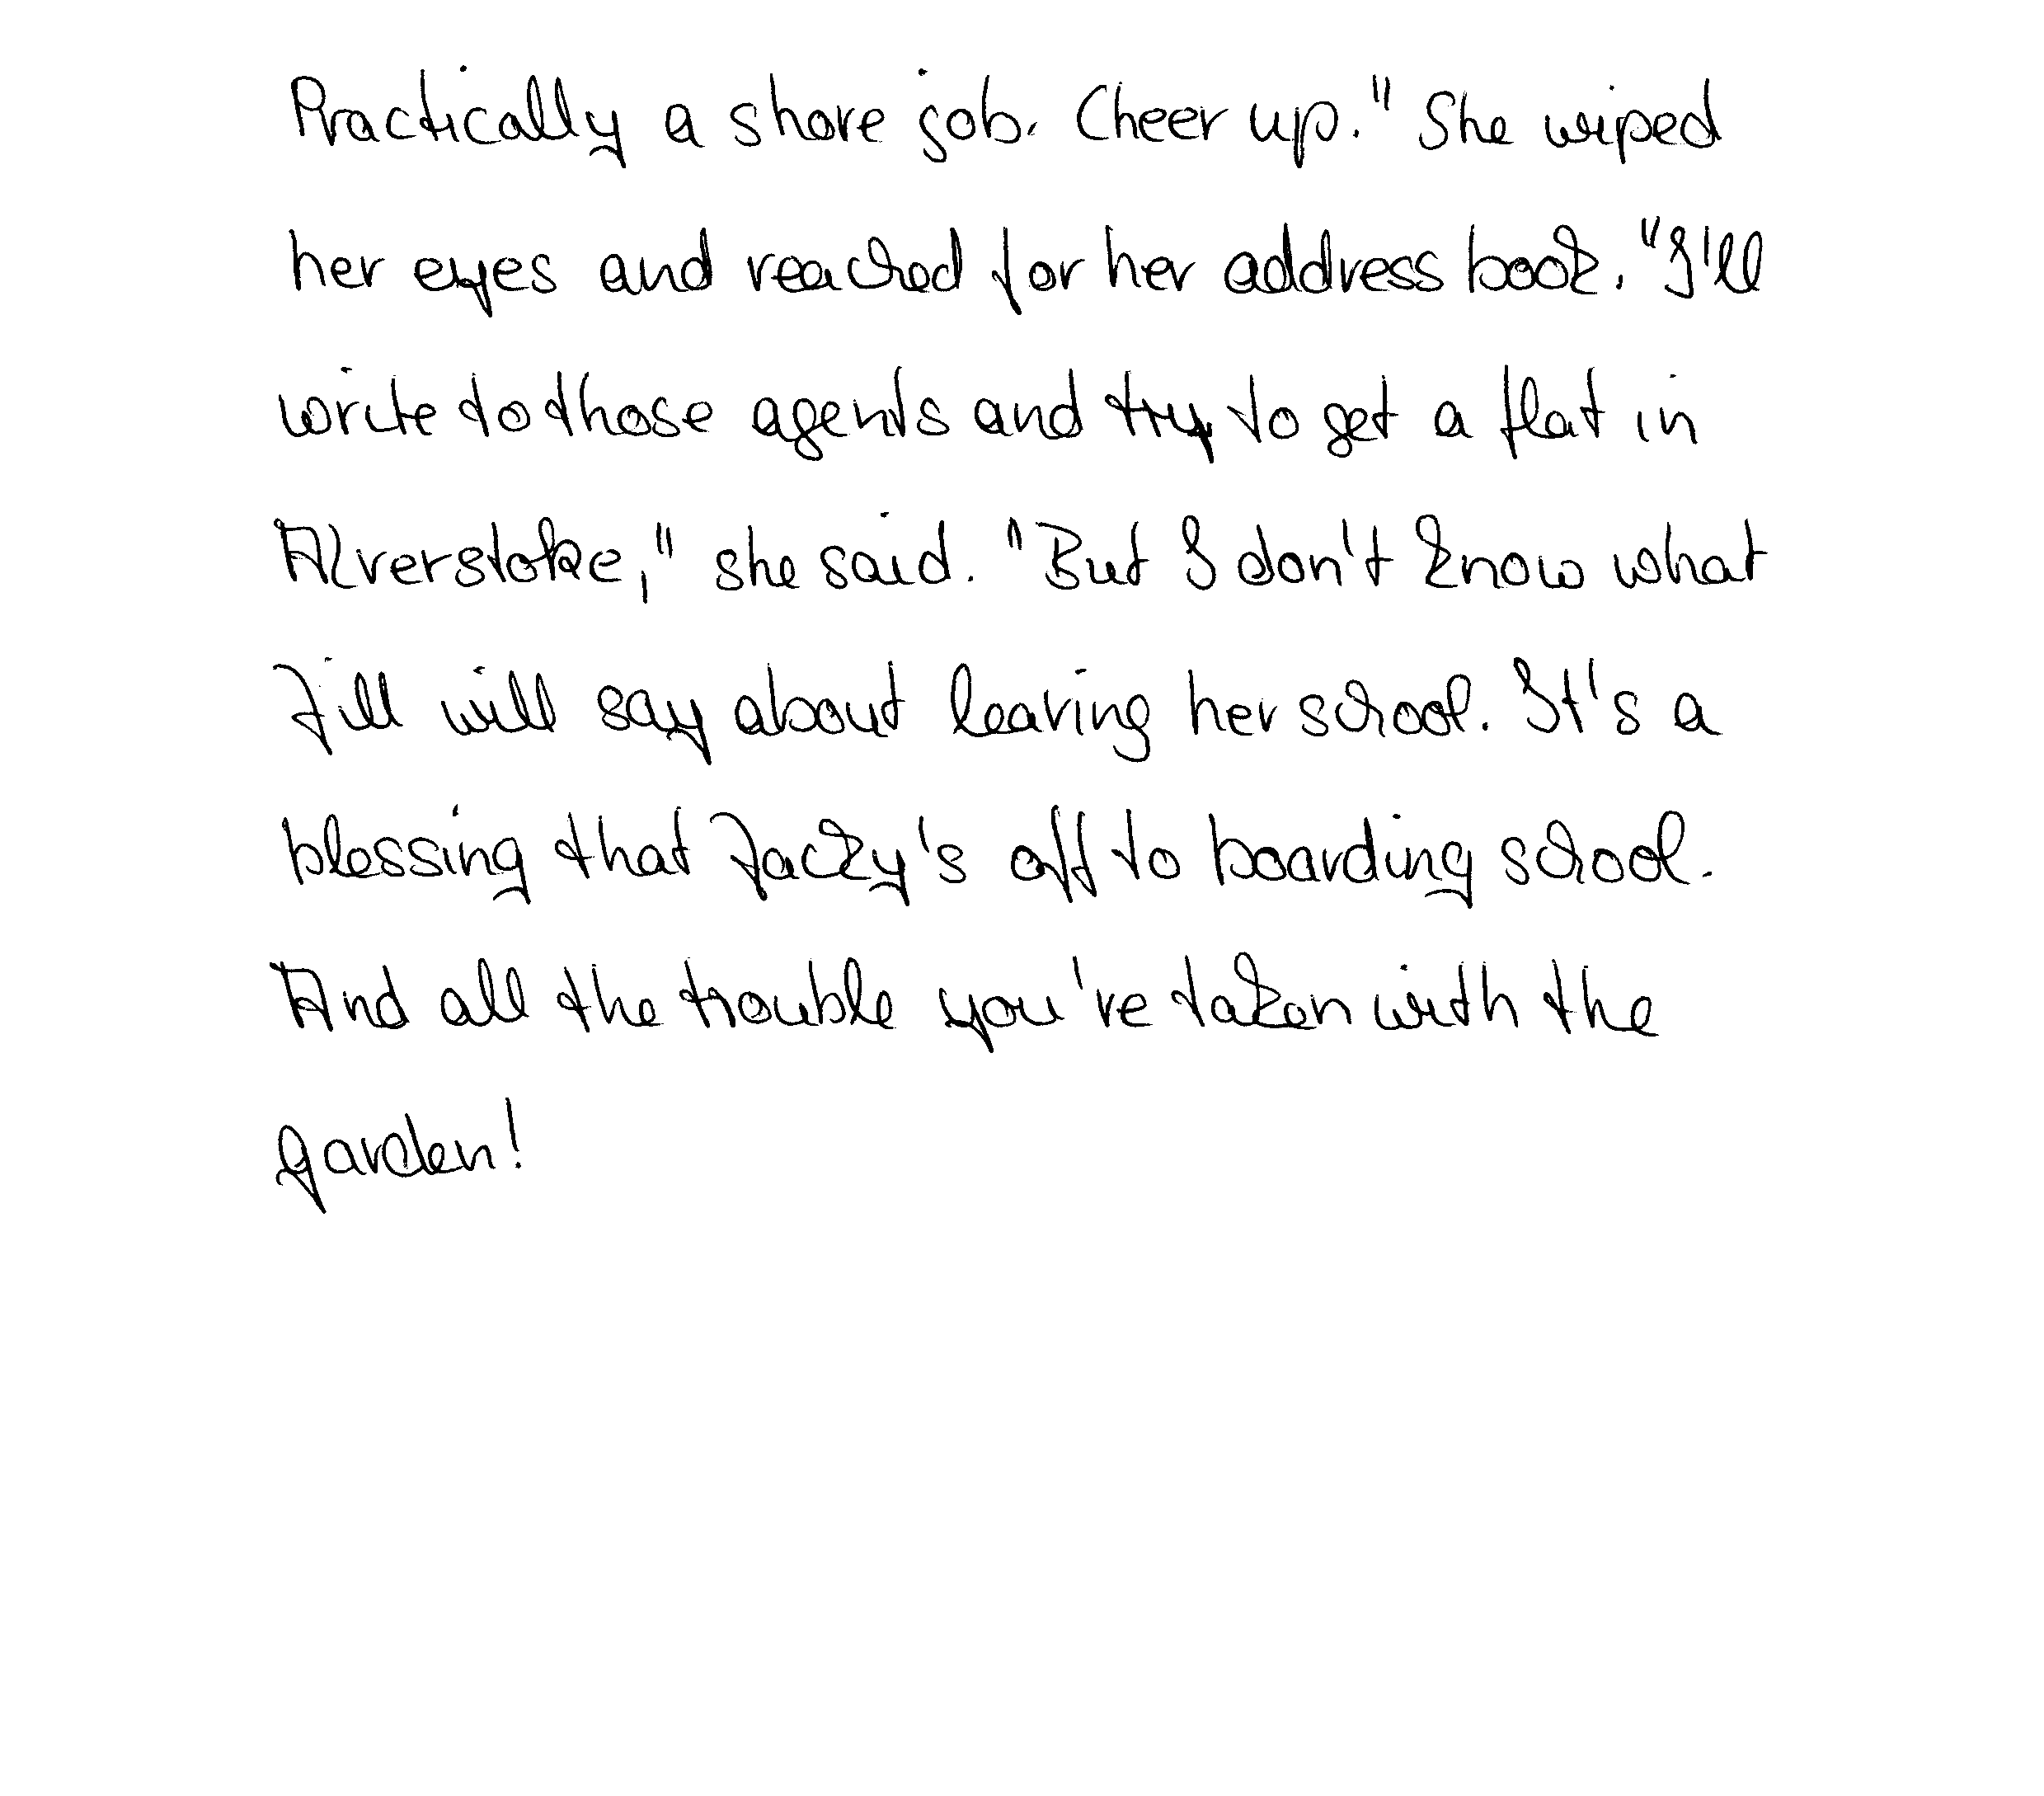 Practically a shore job. Cheer up." She wiped
her eyes and reached for her address book. "I'll
write to those agents and try to get a flat in
Alverstoke," she said. "But I don't know what
Jill will say about leaving her school. It's a
blessing that Jacky's off to boarding school.
And all the trouble you've taken with the
garden!